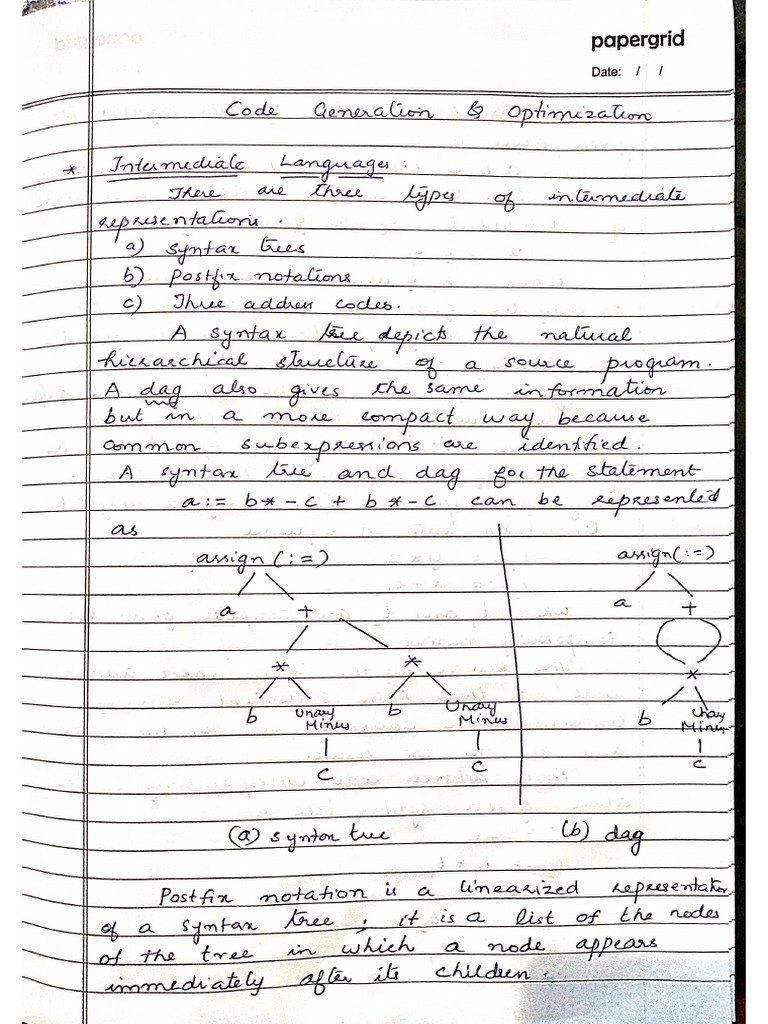 papergrid
Date: / /
Code Generation & Optimization
* Intermediate Languages:
There are three types of intermediate
representations.
a) syntax trees
b) Postfix notations
c) Three address codes.
A syntax tree depicts the natural
hierarchical structure of a source program.
A dag also gives the same information
but in a more compact way because
common subexpressions are identified.
A syntax tree and dag for the statement
a := b * - c + b * - c can be represented
as
assign (:=) assign (:=)
a + a +
* * *
b Unary Minus b Unary Minus b Unary Minus
c c c
(a) syntax tree (b) dag
Postfix notation is a linearized representation
of a syntax tree; it is a list of the nodes
of the tree in which a node appears
immediately after its children.